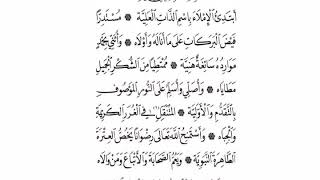 أَبْتَدِئُ الْإِمْلَاءَ بِاسْمِ الذَّاتِ الْعَلِيَّةِ ۞ مُسْتَدِرًّا
فَيْضَ الْبَرَكَاتِ عَلَى مَا أَنَالَهُ وَأَوْلَاهُ ۞ وَأُثَنِّي بِحَمْدٍ
مَوَارِدُهُ سَائِغَةٌ هَنِيَّةٌ ۞ مُمْتَطِيًا مِنَ الشُّكْرِ الْجَمِيلِ
مَطَايَاهُ ۞ وَأُصَلِّي وَأُسَلِّمُ عَلَى النُّورِ الْمَوْصُوفِ
بِالتَّقَدُّمِ وَالْأَوَّلِيَّةِ ۞ الْمُنْتَقِلِ فِي الْغُرَرِ الْكَرِيمَةِ
وَالْجِبَاهِ ۞ وَأَسْتَمْنِحُ اللهَ تَعَالَى رِضْوَانًا يَخُصُّ الْعِتْرَةَ
الطَّاهِرَةَ النَّبَوِيَّةَ ۞ وَيَعُمُّ الصَّحَابَةَ وَالْأَتْبَاعَ وَمَنْ وَالَاهُ